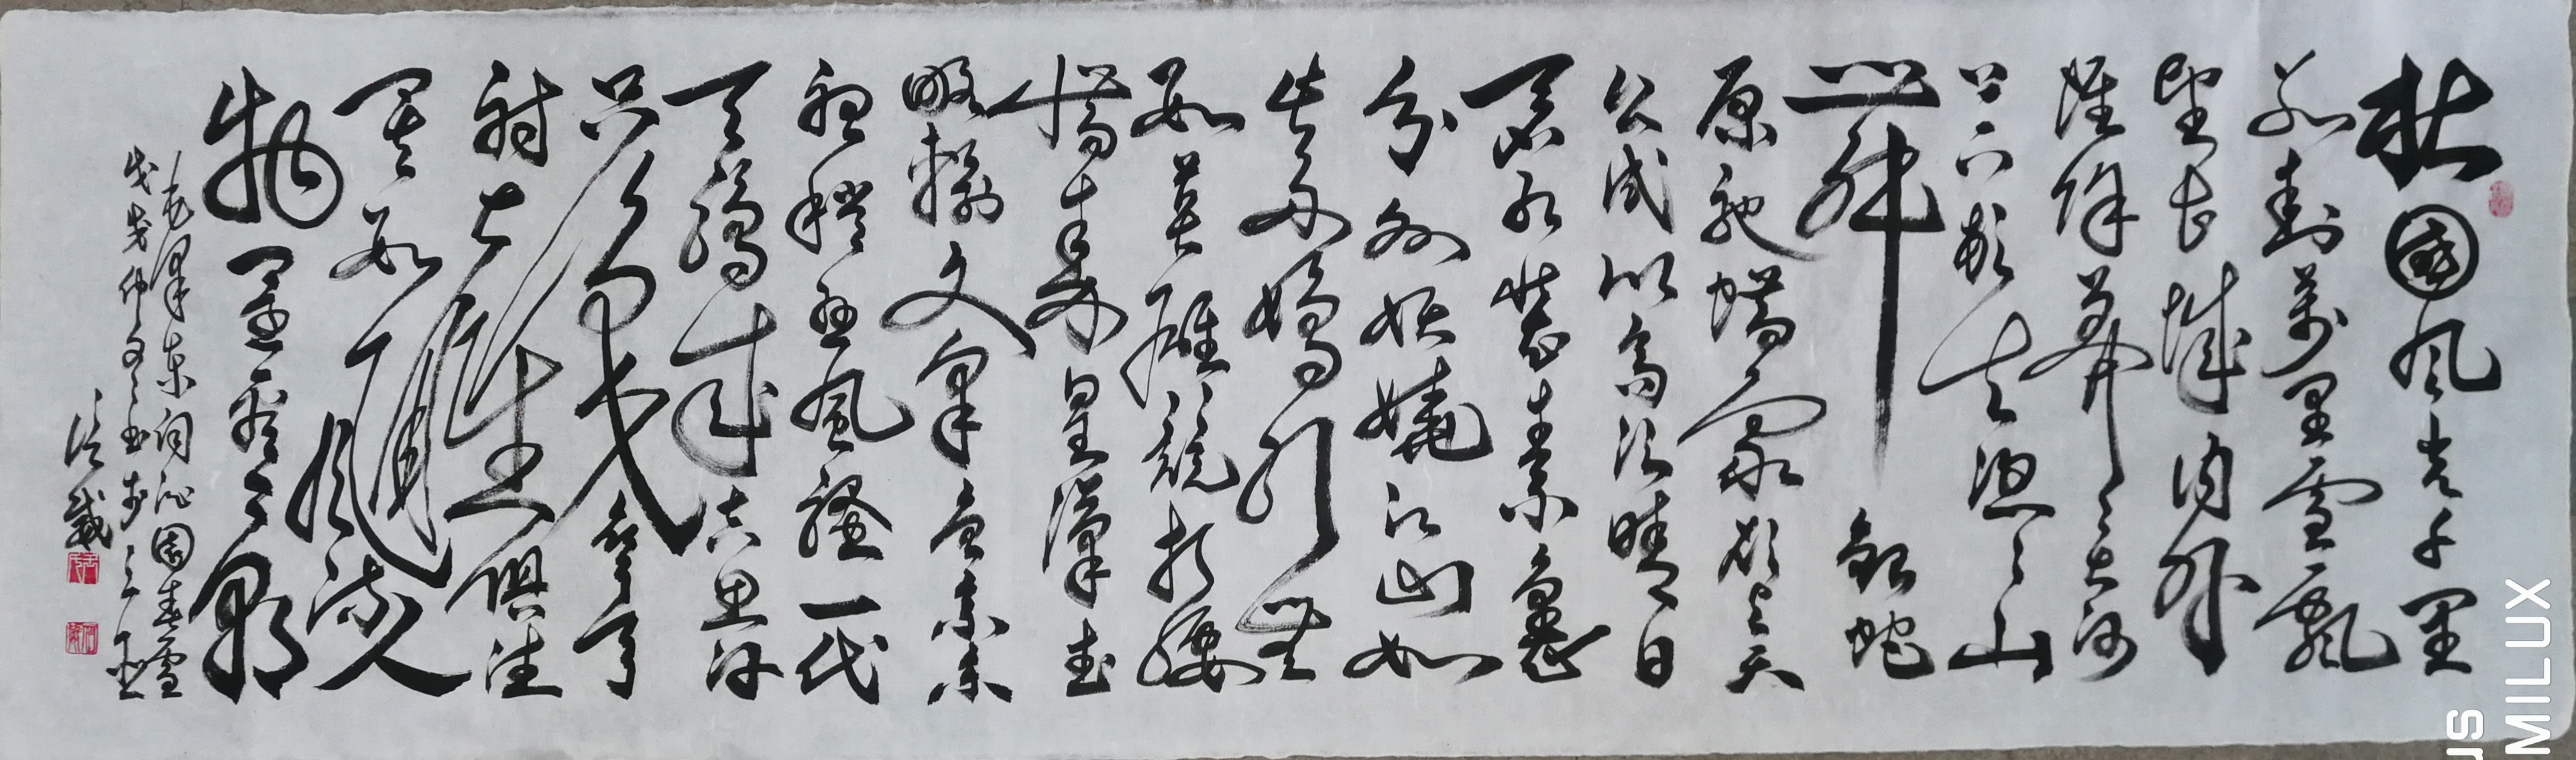 北國风光千里
冰封萬里雪飘
望长城内外
惟馀莽莽大河
上下顿失滔滔山
舞銀蛇
原驰蜡象欲与天
公试比高须晴日
看红装素裹
分外妖娆江山如
此多娇引無
数英雄競折腰
惜秦皇漢武
略输文采唐宗宋
祖稍逊風骚一代
天骄成吉思汗
只识弯弓
射大雕俱往
矣数风流人
物還看今朝
毛泽东词沁园春雪
戊戌仲冬
MILUX